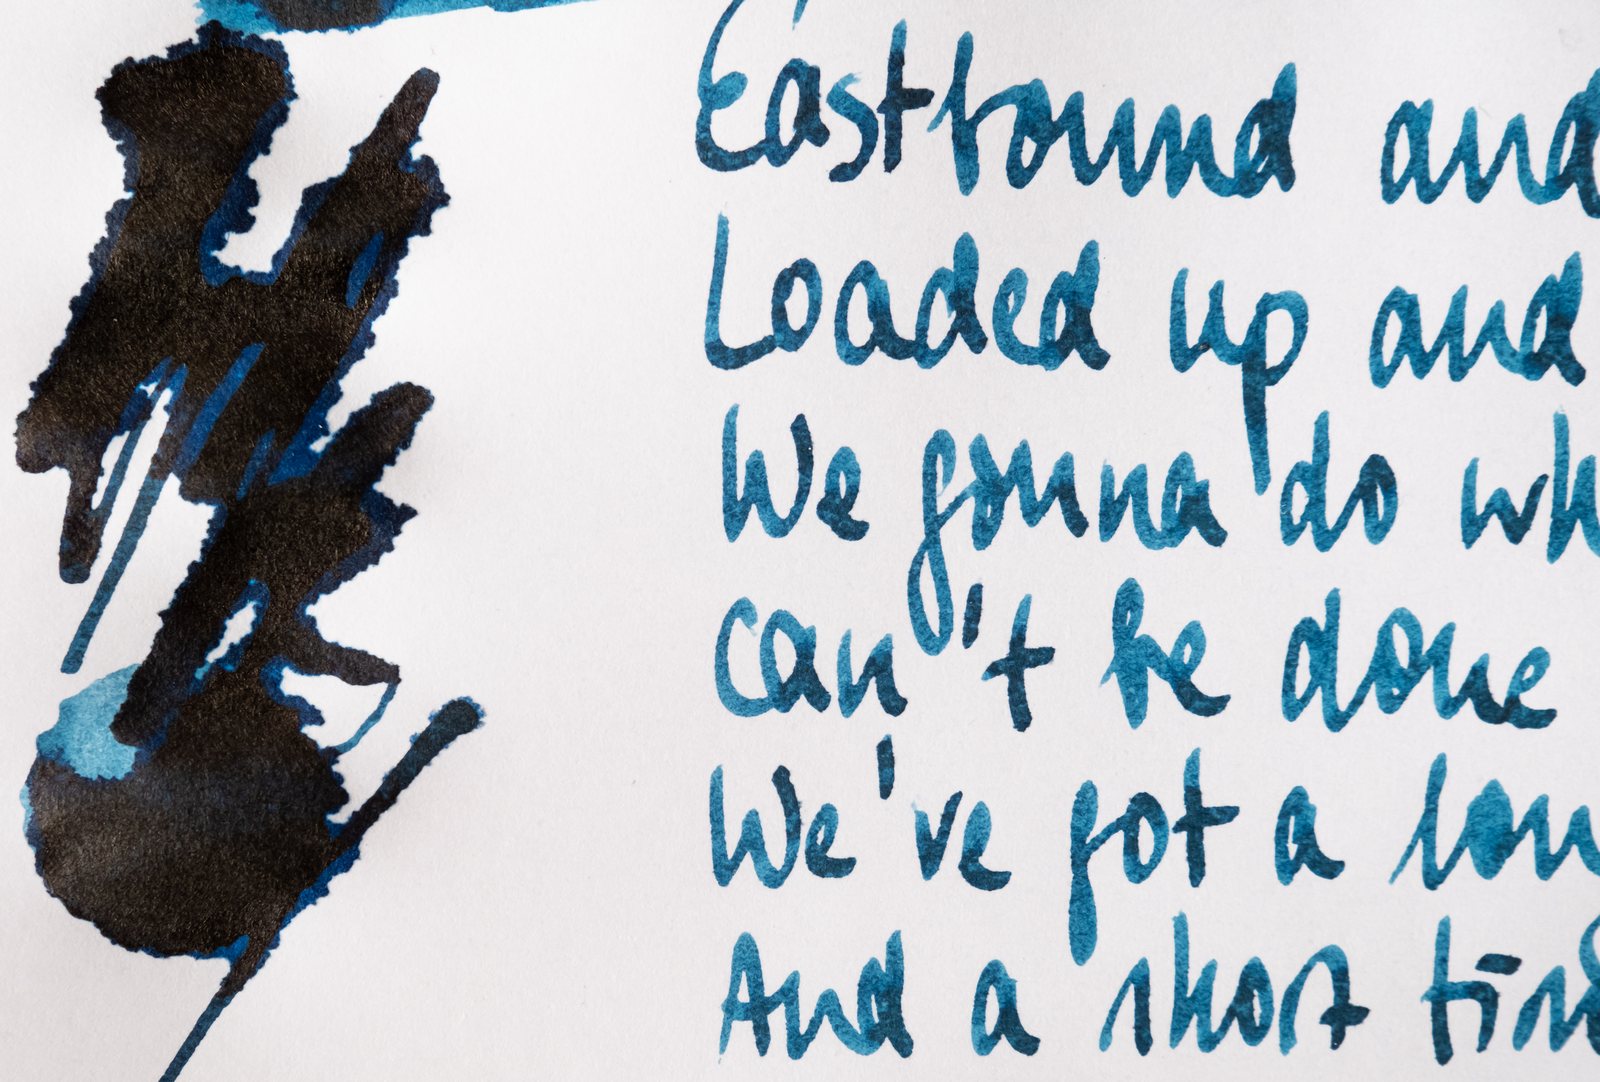 Eastbound and
Loaded up and
We gonna do wh
can't be done
We've got a lon
And a short tim